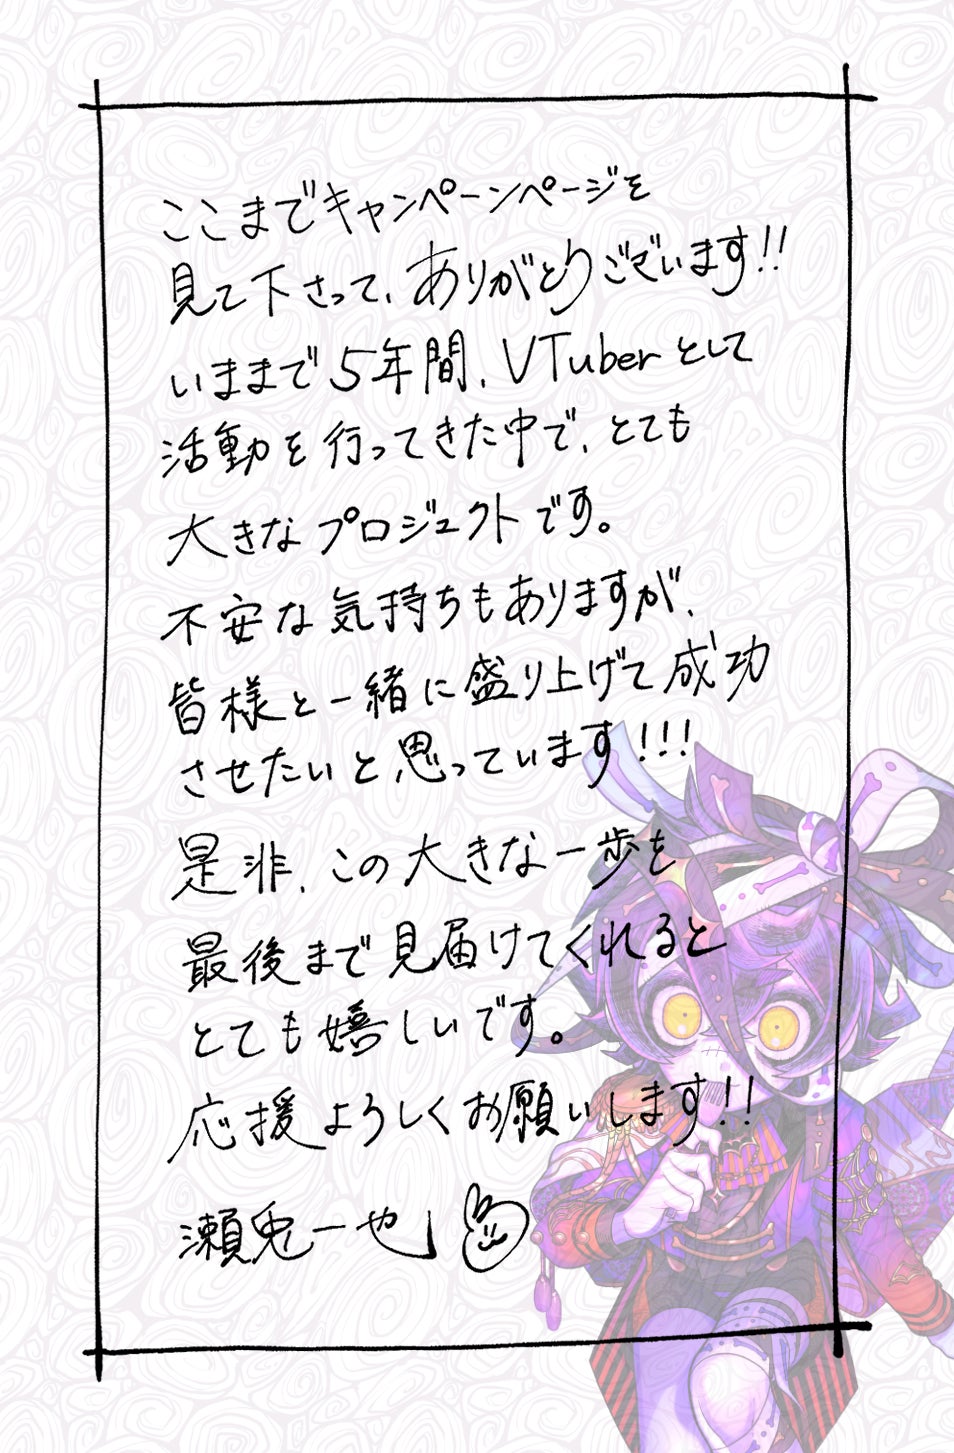 ここまでキャンペーンページを
見て下さって、ありがとうございます!!
いままで5年間、VTuberとして
活動を行ってきた中で、とても
大きなプロジェクトです。
不安な気持ちもありますが、
皆様と一緒に盛り上げて成功
させたいと思っています!!!
是非、この大きな一歩を
最後まで見届けてくれると
とても嬉しいです。
応援よろしくお願いします!!
瀬兎一也